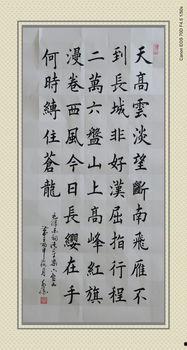 天高雲淡望斷南飛雁不
到長城非好漢屈指行程
二萬六盤山上高峰紅旗
漫卷西風今日長纓在手
何時縛住蒼龍
毛澤東詞清平樂六盤山
Canon EOS 70D